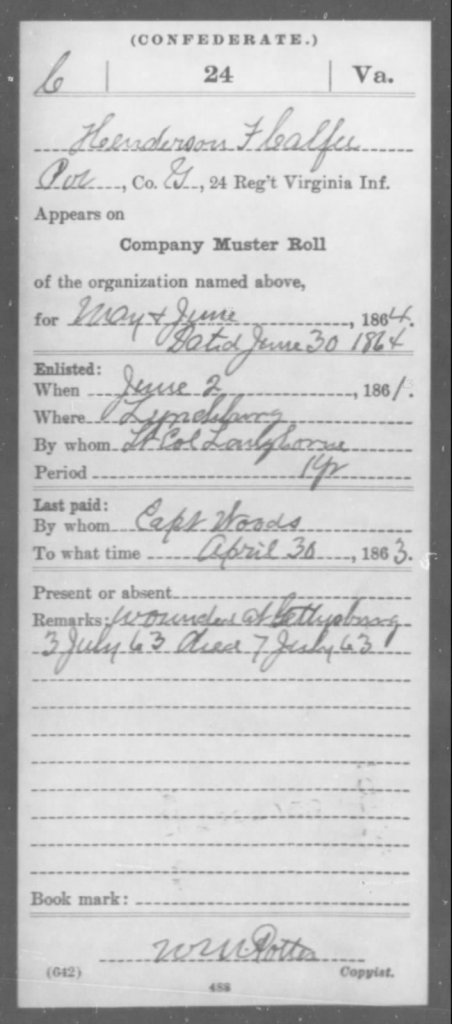 (CONFEDERATE.)
C | 24 | Va.
Henderson F Calfee
Pvt, Co. G, 24 Reg't Virginia Inf.
Appears on
Company Muster Roll
of the organization named above,
for May & June, 1864.
Dated June 30 1864
Enlisted:
When June 2, 1861.
Where Lynchburg
By whom Lt Col Langhorne
Period 1 yr
Last paid:
By whom Capt Woods
To what time April 30, 1863.
Present or absent
Remarks: wounded at Gettysburg
3 July 63 died 7 July 63
Book mark:
Potter
(642) Copyist.
488